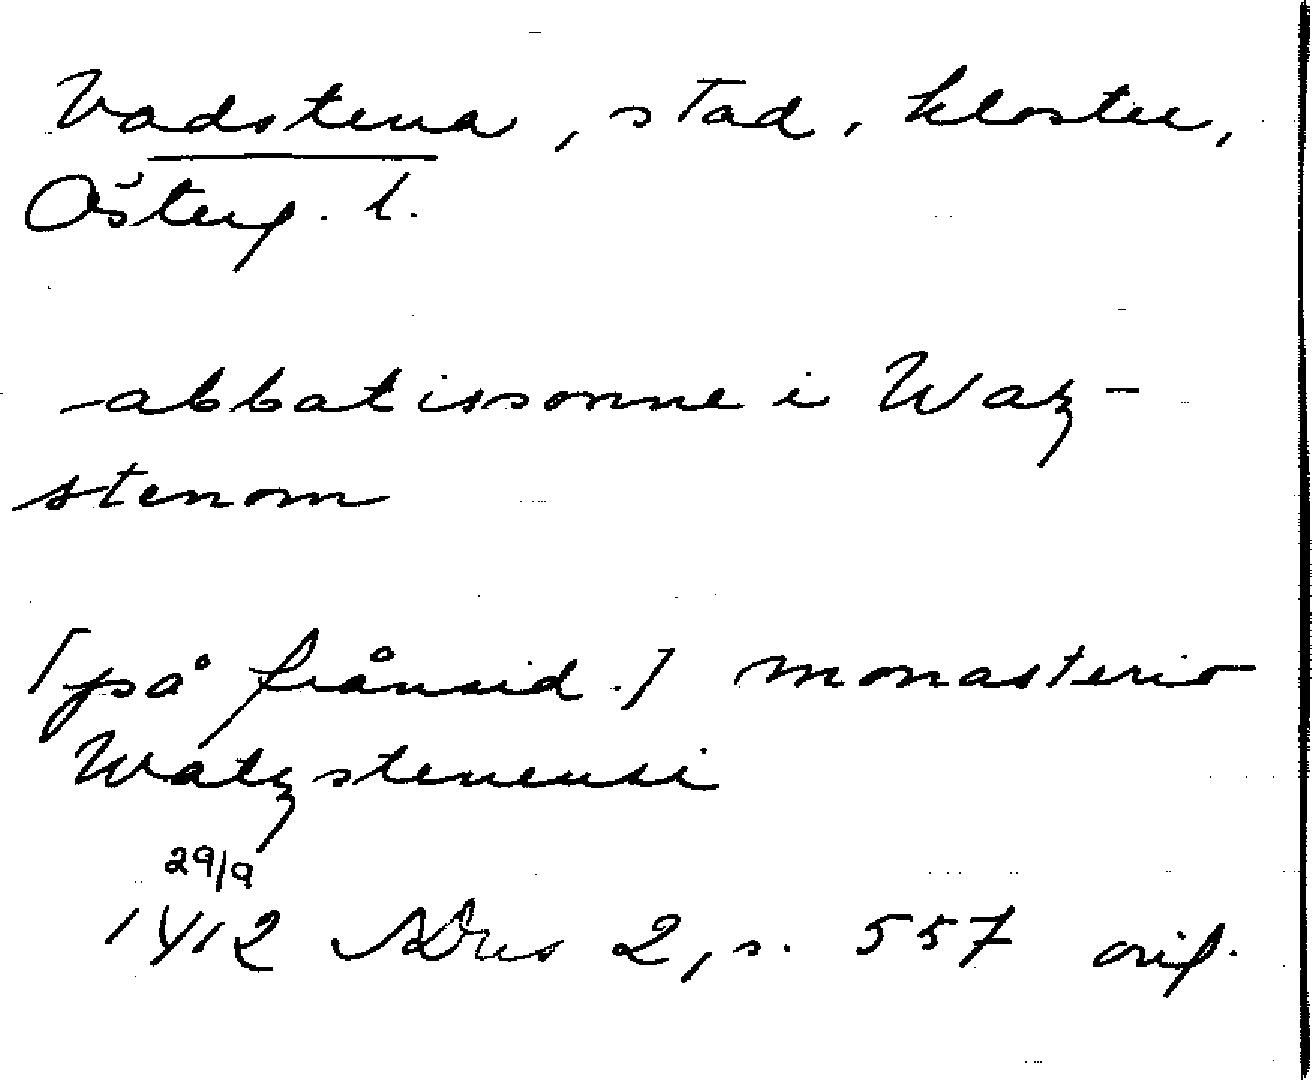 Vadstena, stad, kloster,
Österg. l.
abbatissonne i Waz-
stenom
[på frånsid.] monasterio
Watzstenensi
29/9
1412 SDns 2, s. 557 orig.